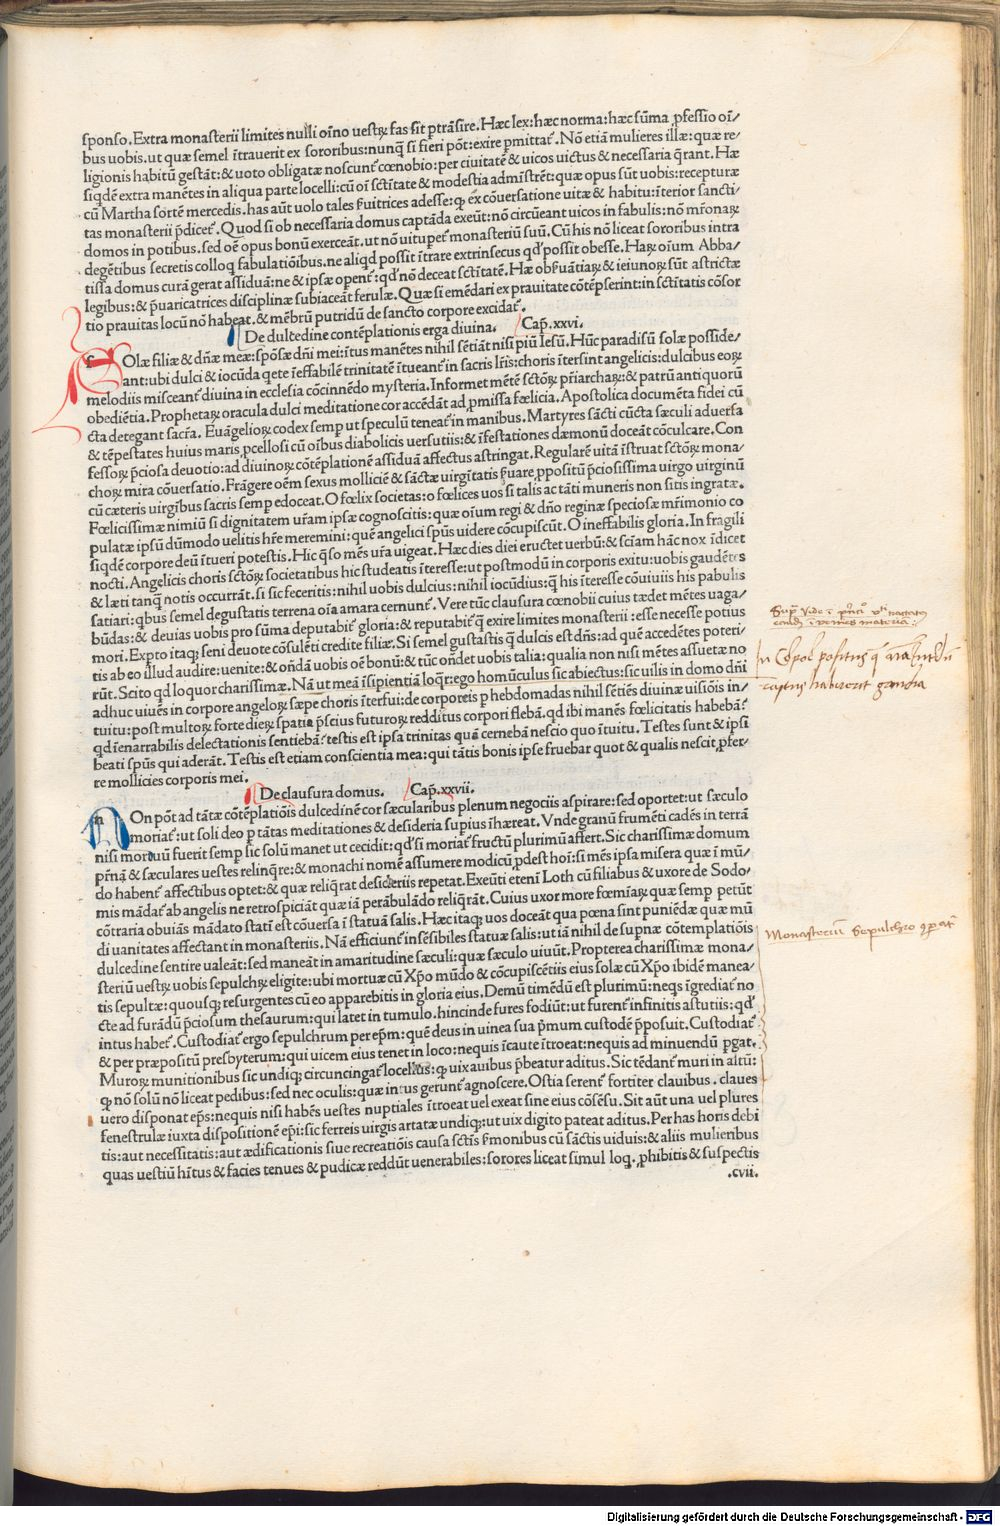 sponso. Extra monasterii limites nulli oīno uestꝝ fas sit ptrāsire. Hæc lex: hæc norma: hæc sūma ꝓfessio oī/
bus uobis. ut quæ semel ītrauerit ex sororibus: nunq̄ si fieri pōt: exire pmittat᷑. Nō etiā mulieres illæ: quæ re/
ligionis habitū gestāt: & uoto obligatæ noscunt᷑ cœnobio: per ciuitatē & uicos uictus & necessaria q̄rant. Hæ
siqdē extra manētes in aliqua parte locelli: cū oī sctītate & modestia admīstrēt: quæ opus sūt uobis: recepturæ
cū Martha sortē mercedis. has aūt uolo tales ſuitrices adesse: ꝙ ex cōuersatione uitæ & habitu: īterior sancti/
tas monasterii p̄dicet᷑. Quod si ob necessaria domus captāda exeūt: nō circūeant uicos in fabulis: nō mr̄onaꝝ
domos in potibus. sed oē opus bonū exerceāt. ut nō uitupet᷑ monasteriū suū. Cū his nō liceat sororibus intra
degētibus secretis colloq̄ fabulatiōibus. ne aliqd possit ītrare extrinsecus qd᷑ possit obesse. Haꝝ oīum Abba/
tissa domus curā gerat assiduā: ne & ipsæ opent᷑: qd᷑ nō deceat sctītatē. Hæ obſuātiaꝝ & ieiunoꝝ sūt astrictæ
legibus: & p̄uaricatrices disciplinæ subiaceāt ferulæ. Quæ si emēdari ex prauitate cōtēpserint: in sctītatis cōsor
tio prauitas locū nō habeat. & mēbrū putridū de sancto corpore excidat᷑.
De dulcedine contēplationis erga diuina. Cap̄. xxvi.
SOlæ filiæ & dñæ meæ: spōsæ dñi mei: ītus manētes nihil sētiāt nisi piū Iesū. Hūc paradisū solæ posside/
ant: ubi dulci & iocūda qete īeffabilē trinitatē ītueant᷑ in sacris lr̄is: choris ītersint angelicis: dulcibus eoꝝ
melodiis misceant᷑ diuina in ecclesia cōcinnēdo mysteria. Informet mētē sctōꝝ pr̄iarchaꝝ: & patrū antiquorū
obediētia. Prophetaꝝ oracula dulci meditatione cor accēdāt ad ꝓmissa fœlicia. Apostolica documēta fidei cū
cta detegant sacr̄a. Euāgelioꝝ codex semp ut speculū teneat᷑ in manibus. Martyres sācti cūcta sæculi aduersa
& tēpestates huius maris ꝓcellosi cū oībus diabolicis uersutiis: & īfestationes dæmonū doceāt cōculcare. Con
fessoꝝ p̄ciosa deuotio: ad diuinoꝝ cōtēplationē assiduā affectus astringat. Regularē uitā īstruat sctōꝝ mona/
choꝝ mira cōuersatio. Frāgere oēm sexus molliciē & sāctæ uirgītatis ſuare ꝓpositū p̄ciosissima uirgo uirginū
cū cæteris uirgībus sacris semp edoceat. O fœlix societas: o fœlices uos si talis ac tāti muneris non sitis ingratæ.
Fœlicissimæ nimiū si dignitatem ur̄am ipsæ cognoscitis: quæ oīum regi & dño reginæ speciosæ mr̄imonio co
pulatæ ipsū dūmodo uelitis hr̄e meremini: quē angelici sp̄us uidere cōcupiscūt. O ineffabilis gloria. In fragili
siqdē corpore deū ītueri potestis. Hic q̄so mēs ur̄a uigeat. Hæc dies diei eructet uerbū: & scīam hāc nox īdicet
nocti. Angelicis choris sctōꝝ societatibus hic studeatis īteresse: ut postmodū in corporis exitu: uobis gaudētes
& læti tanq̄ notis occurrāt. si sic feceritis: nihil uobis dulcius: nihil iocūdius: q̄ his īteresse cōuiuiis his pabulis
satiari: qbus semel degustatis terrena oīa amara cernunt᷑. Vere tūc clausura cœnobii cuius tædet mētes uaga/
būdas: & deuias uobis pro sūma deputabit᷑ gloria: & reputabit᷑ q̄ exire limites monasterii: esse necesse potius
mori. Expto itaq; seni deuote cōsulēti credite filiæ. Si semel gustastis q̄ dulcis est dñs: ad quē accedētes poteri/
tis ab eo illud audire: uenite: & oñdā uobis oē bonū: & tūc oñdet uobis talia: qualia non nisi mētes assuetæ no
rūt. Scito qd loquor charissimæ. Nā ut meā īsipientiā loq̄r: ego homūculus sic abiectus: sic uilis in domo dñi
adhuc uiuēs in corpore angeloꝝ sæpe choris īterfui: de corporeis p hebdomadas nihil sētiēs diuinæ uisiōis in/
tuitu: post multoꝝ forte dieꝝ spatia p̄scius futuroꝝ redditus corpori flebā. qd ibi manēs fœlicitatis habebā?
qd īenarrabilis delectationis sentiebā? testis est ipsa trinitas quā cernebā nescio quo ītuitu. Testes sunt & ipsi
beati sp̄us qui aderāt. Testis est etiam conscientia mea: qui tātis bonis ipse fruebar quot & qualis nescit ꝓfer/
re mollicies corporis mei.
De clausura domus. Cap̄. xxvii.
NOn pōt ad tātæ cōtēplatiōis dulcedinē cor sæcularibus plenum negociis aspirare: sed oportet: ut sæculo
moriat᷑: ut soli deo p tātas meditationes & desideria supius īhæreat. Vnde granū frumēti cadēs in terrā
nisi mortuū fuerit semp sic solū manet ut cecidit: qd᷑ si moriat᷑ fructū plurimū affert. Sic charissimæ domum
pr̄nā & sæculares uestes relinq̄re: & monachi nomē assumere modicū ꝓdest hoī: si mēs ipsa misera quæ ī mū/
do habent᷑ affectibus optet: & quæ reliq̄rat desideriis repetat. Exeūti etenī Loth cū filiabus & uxore de Sodo/
mis mādat᷑ ab angelis ne retrospiciāt quæ iā perābulādo reliq̄rāt. Cuius uxor more fœmīaꝝ quæ semp petūt
cōtraria obuiās mādato statī est cōuersa ī statuā salis. Hæc itaq; uos doceāt qua pœna sint puniēdæ quæ mū
di uanitates affectant in monasteriis. Nā efficiunt᷑ īsēsibiles statuæ salis: ut iā nihil de supnæ cōtemplatiōis
dulcedine sentire ualeāt: sed maneāt in amaritudine sæculi: quæ sæculo uiuūt. Propterea charissimæ mona/
steriū uestꝝ uobis sepulchꝝ eligite: ubi mortuæ cū Xp̄o mūdo & cōcupiscētiis eius solæ cū Xp̄o ibidē manea/
tis sepultæ: quousq; resurgentes cū eo apparebitis in gloria eius. Demū timēdū est plurimū: neqs īgrediat᷑ no
cte ad furādū p̄ciosum thesaurum: qui latet in tumulo. hincinde fures fodiūt: ut furent᷑ infinitis astutiis: qd᷑
intus habet᷑. Custodiat᷑ ergo sepulchrum per ep̄m: quē deus in uinea sua p̄mum custodē p̄posuit. Custodiat᷑
& per præpositū presbyterum: qui uicem eius tenet in loco: nequis īcaute ītroeat: nequis ad minuendū pgat.
Muroꝝ munitionibus sic undiq; circuncingat᷑ locellus: ꝙ uix auibus p̄beatur aditus. Sic tēdant᷑ muri in altū:
ꝙ nō solū nō liceat pedibus: sed nec oculis: quæ intus gerunt᷑ agnoscere. Ostia serent᷑ fortiter clauibus. claues
uero disponat ep̄s: nequis nisi habēs uestes nuptiales ītroeat uel exeat sine eius cōsēsu. Sit aūt una uel plures
fenestrulæ iuxta dispositionē ep̄i: sic ferreis uirgis artatæ undiq;: ut uix digito pateat aditus. Per has horis debi
tis: aut necessitatis: aut ædificationis siue recreatiōis causa sctīs ſmonibus cū sāctis uiduis: & aliis mulieribus
quas uestiū hītus & facies tenues & pudicæ reddūt uenerabiles: sorores liceat simul loq̄. ꝓhibitis & suspectis
.cvii.
materia:
In Corpore positus
raptus habuerit gaudia
Monasteriū Sepulchro
Digitalisierung gefördert durch die Deutsche Forschungsgemeinschaft - DFG